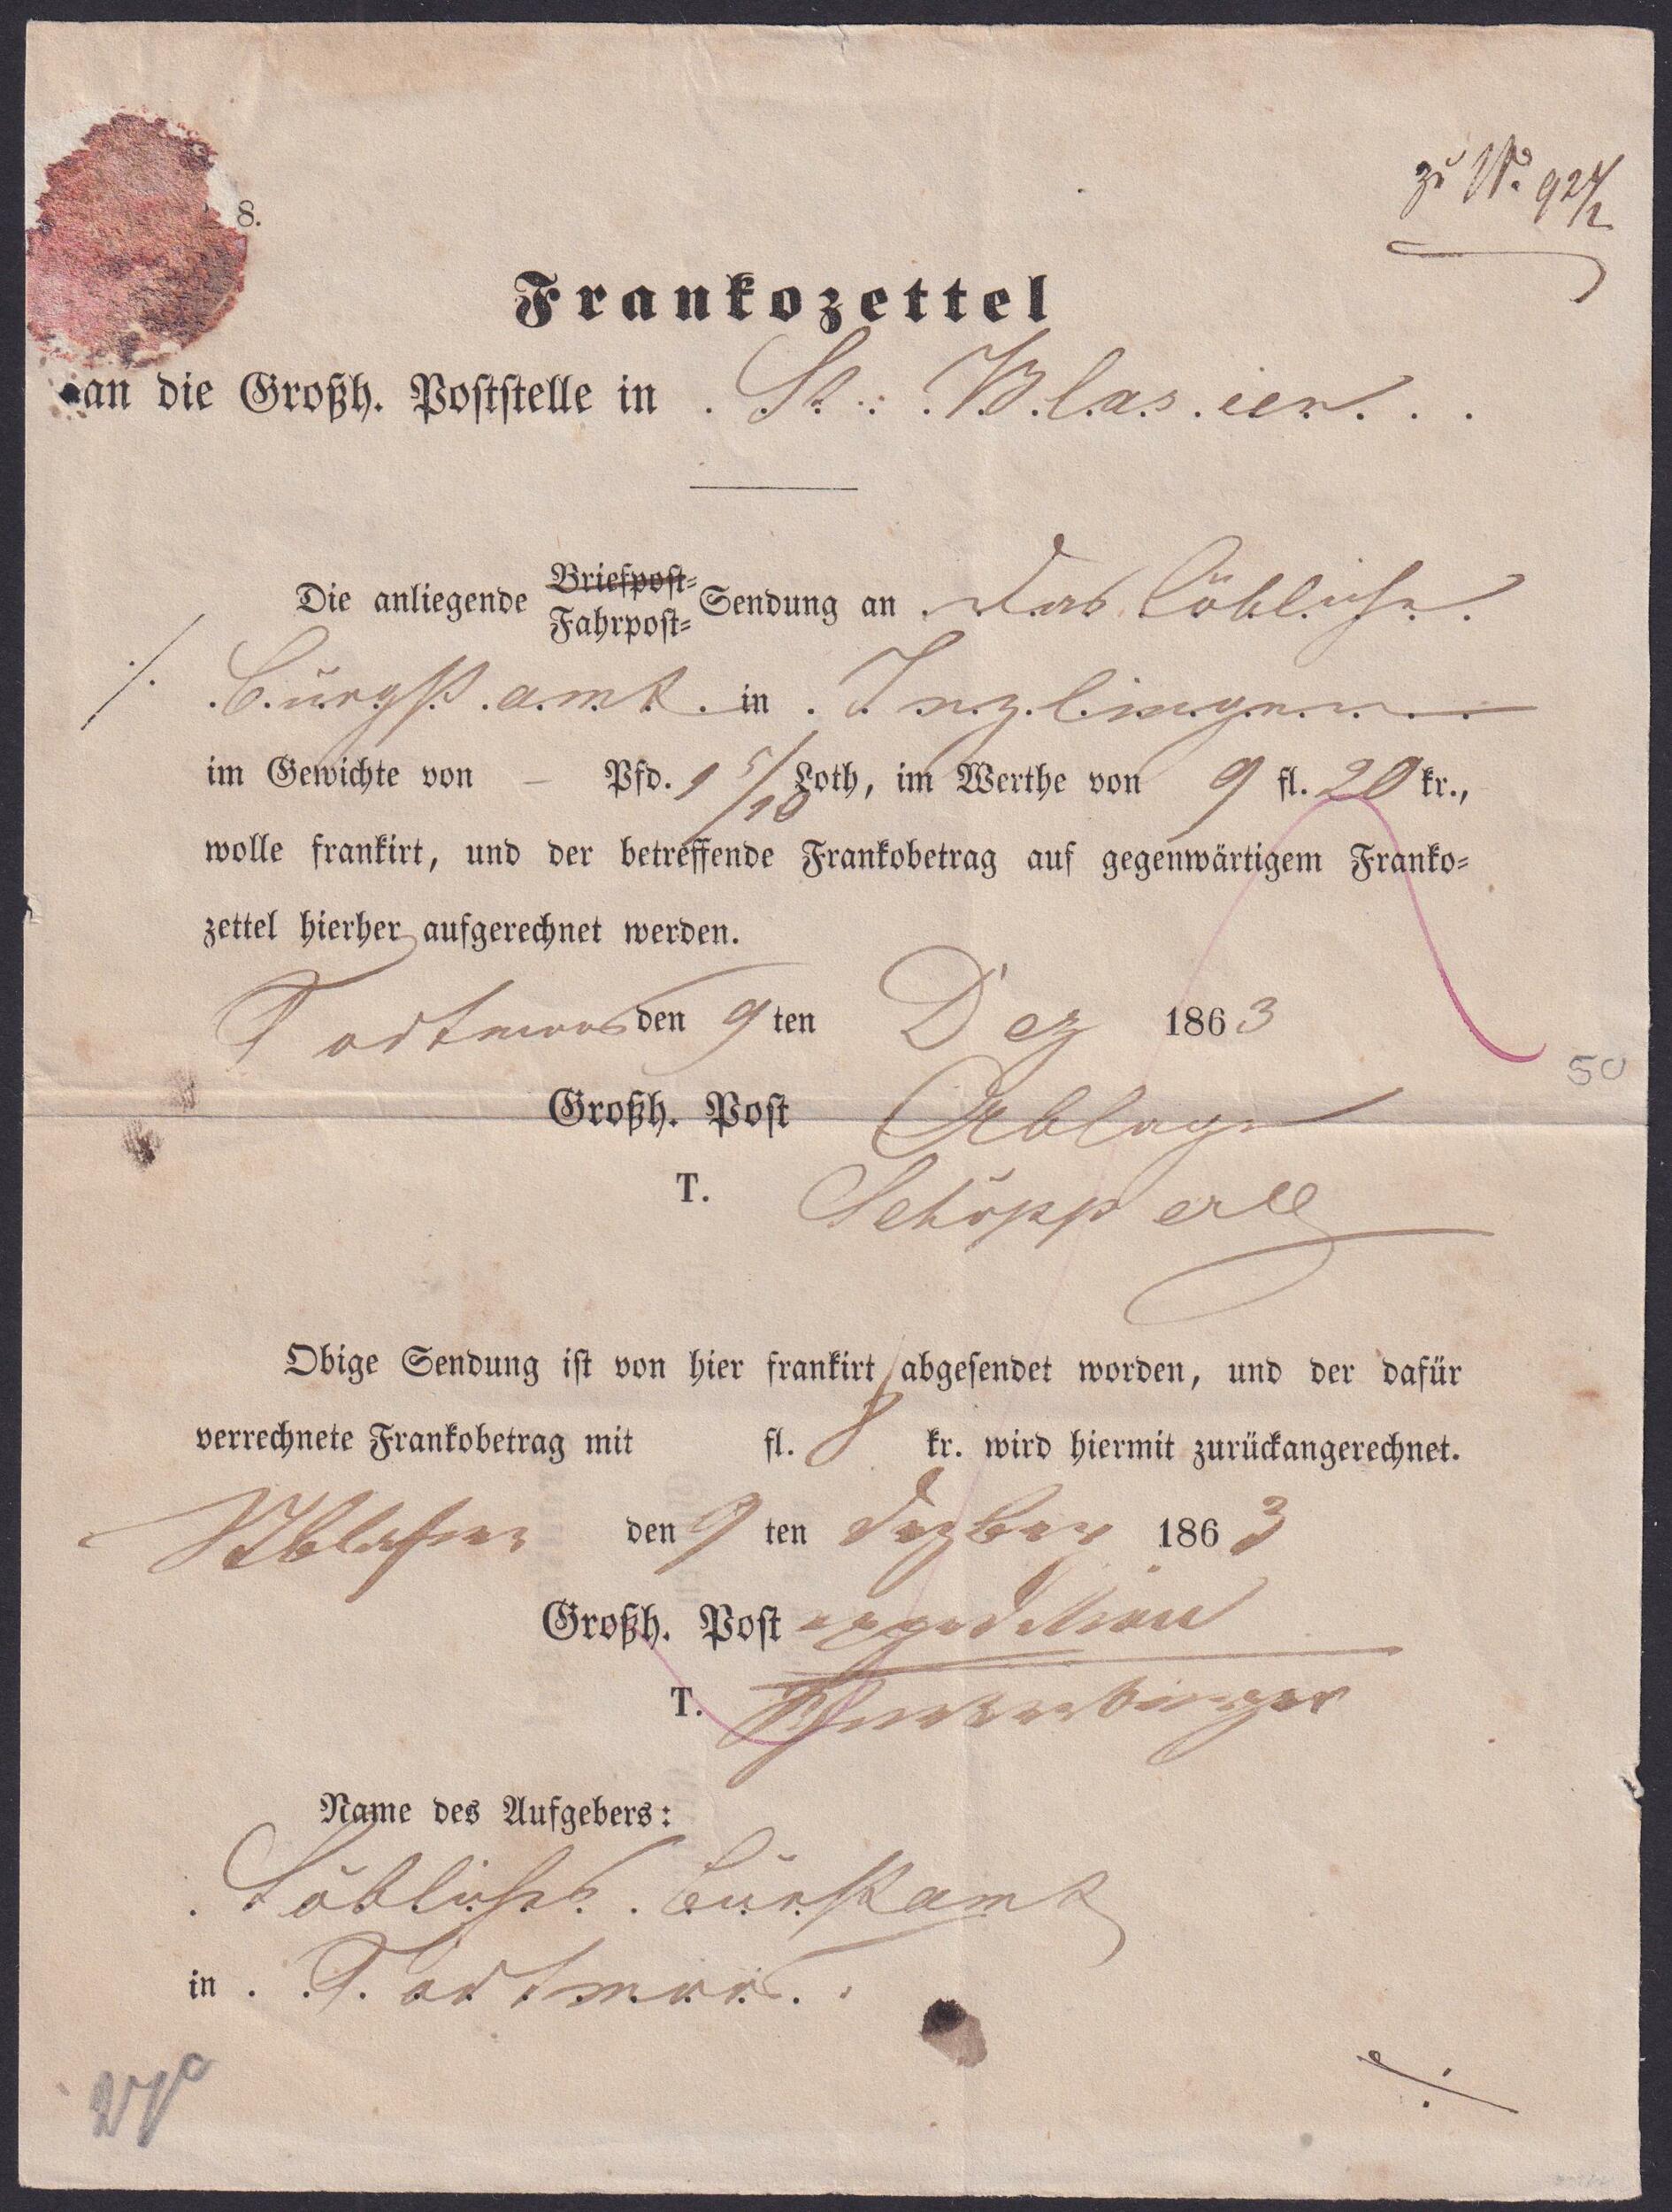 zu No. 924/2
8.
Frankozettel
an die Großh. Poststelle in St. Blasien
Die anliegende Briefpost- Fahrpost- Sendung an das Löbliche
Bürgstamt in Inzlingen
im Gewichte von – Pfd. 1 5/10 Loth, im Werthe von 9 fl. 20 kr.,
wolle frankirt, und der betreffende Frankobetrag auf gegenwärtigem Franko-
zettel hierher aufgerechnet werden.
Todtmoos den 9 ten Dez 1863
50
Großh. Post Ablage
T. Schöpperle
Obige Sendung ist von hier frankirt abgesendet worden, und der dafür
verrechnete Frankobetrag mit fl. 8 kr. wird hiermit zurückangerechnet.
StBlasien den 9 ten Dezber 1863
Großh. Post expedition
T.
Name des Aufgebers:
Löbliches Bürstamt
in Todtmoos